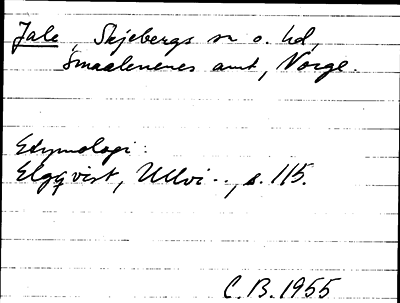 Jale, Skjebergs sn o. hd,
Smaalenenes amt, Norge.
Etymologi:
Elgqvist, Ullvi-.., s. 115.
C.B. 1955